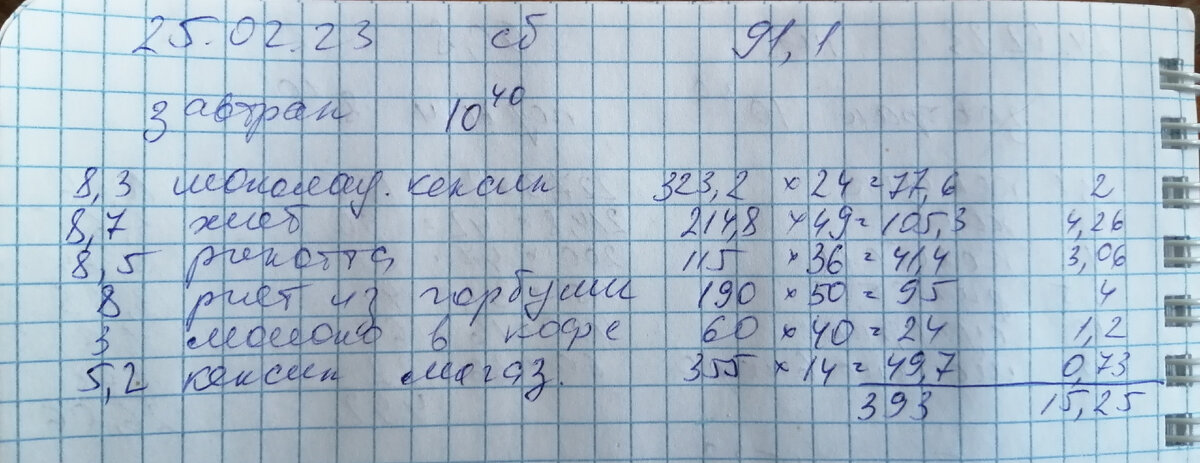 25.02.23 сб 91,1
Завтрак 10⁴⁰
8,3 шоколад. кексик 323,2 × 24 = 77,6 2
8,7 хлеб 214,8 × 49 = 105,3 4,26
8,5 рикотта 115 × 36 = 41,4 3,06
8 риет из горбуши 190 × 50 = 95 4
3 молоко в кофе 60 × 40 = 24 1,2
5,2 кексик магаз. 355 × 14 = 49,7 0,73
393 15,25